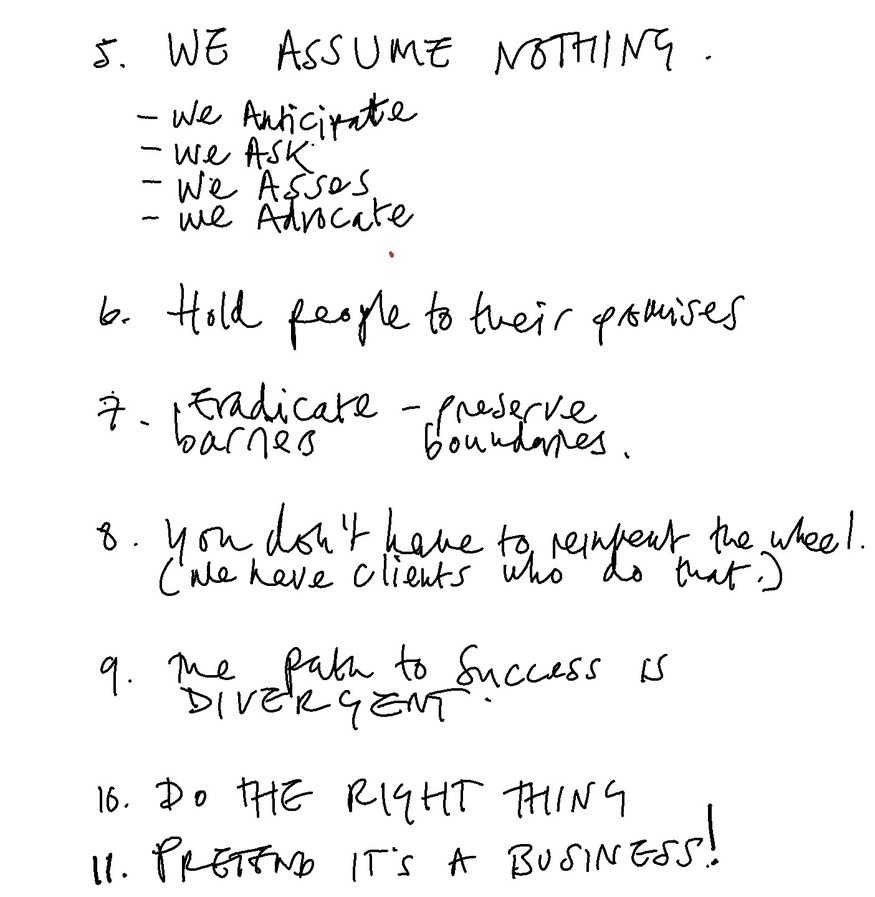 5. WE ASSUME NOTHING.
- We Anticipate
- We ASK
- We Asses
- We Advocate
6. Hold people to their promises
7. Eradicate - preserve
barriers boundaries.
8. You don't have to reinvent the wheel.
(We have clients who do that.)
9. The path to Success is
DIVERGENT.
10. DO THE RIGHT THING
11. PRETEND IT'S A BUSINESS!